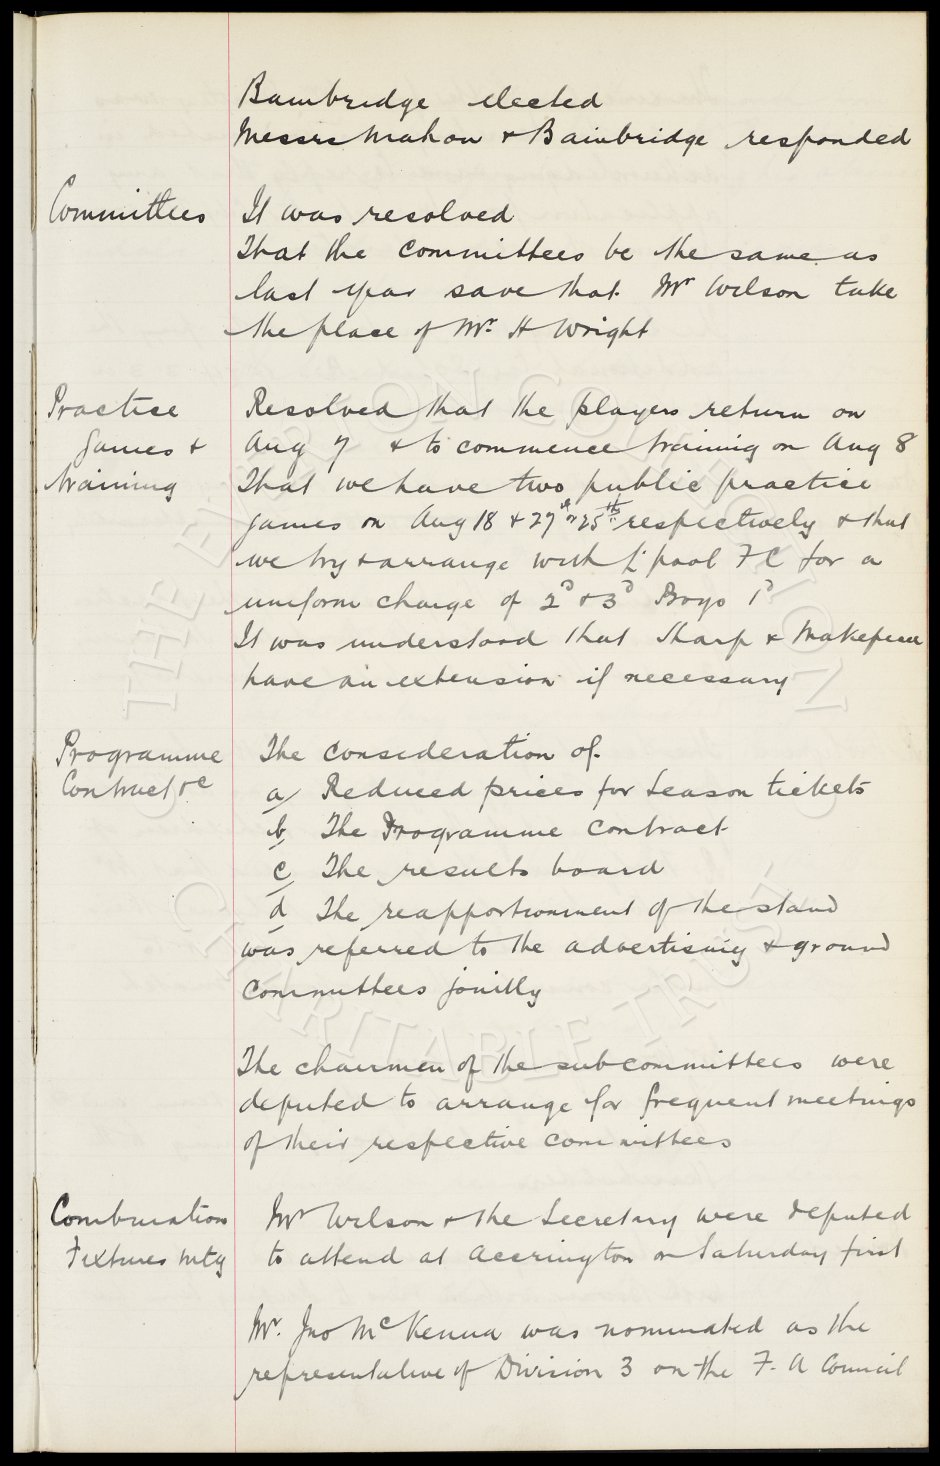 Bambridge elected
Messrs Mahon & Bainbridge responded
Committees
It was resolved
That the committees be the same as
last year save that Mr Wilson take
the place of Mr. H Wright
Practise
games &
training
Resolved that the players return on
Aug 7 & to commence training on Aug 8
That we have two public practice
games on Aug 18 & 27th or 25th respectively & that
we try & arrange with L'pool F C for a
uniform charge of 2d & 3d Boys 1d
It was understood that Sharp & Makepeace
have an extension if necessary
Programme
Contract &c
The consideration of
a/ Reduced prices for Season tickets
b/ The Programme contract
c/ The results board
d/ The reapportionment of the stand
was referred to the advertising & ground
committees jointly
The chairmen of the subcommittees were
deputed to arrange for frequent meetings
of their respective committees
Combination
Fixtures mtg
Mr Wilson & the Secretary were deputed
to attend at Accrington on Saturday first
Mr. Jno McKenna was nominated as the
representative of Division 3 on the F. A Council
THE EVERTON COLLECTION
CHARITABLE TRUST